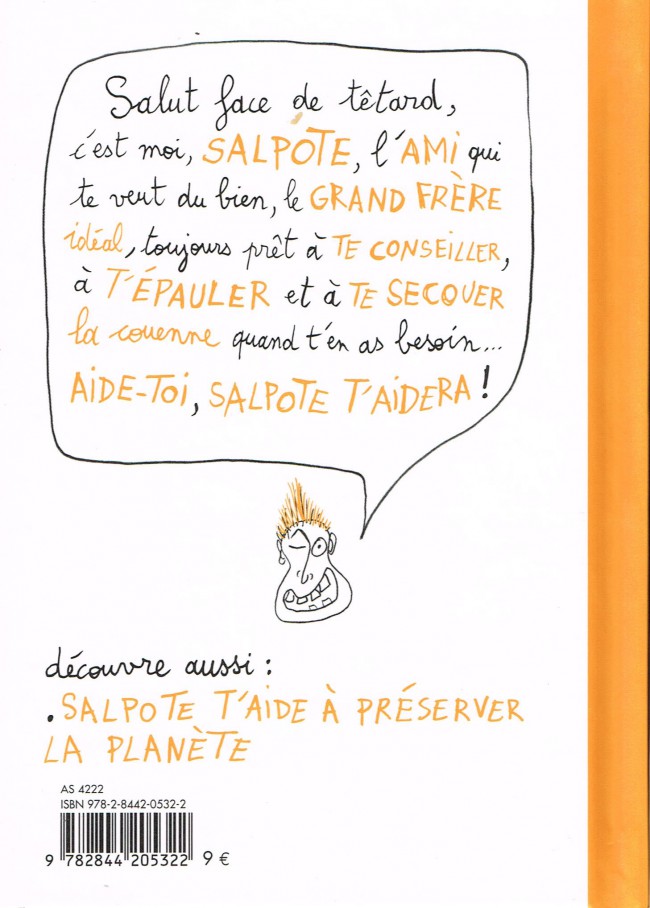 Salut face de têtard,
c'est moi, SALPOTE, l'AMI qui
te veut du bien, le GRAND FRÈRE
idéal, toujours prêt à TE CONSEILLER,
à T'ÉPAULER et à TE SECOUER
la couenne quand t'en as besoin...
AIDE-TOI, SALPOTE T'AIDERA !
découvre aussi :
. SALPOTE T'AIDE À PRÉSERVER
LA PLANÈTE
AS 4222
ISBN 978-2-8442-0532-2
9 782844 205322 9 €